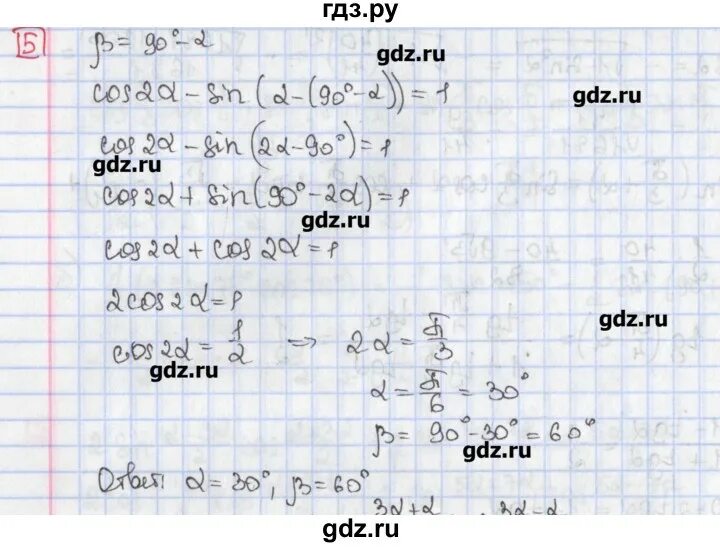 гдз.ру
5
β = 90° - α
gdz.ru
cos2α - sin(α - (90° - α)) = 1
gdz.ru
cos2α - sin(2α - 90°) = 1
gdz.ru
cos2α + sin(90° - 2α) = 1
gdz.ru
cos2α + cos2α = 1
2cos2α = 1
gdz.ru
cos2α = 1/2 ⇒ 2α = π/3
gdz.ru
α = π/6 = 30°
β = 90° - 30° = 60°
gdz.ru
Ответ: α = 30°, β = 60°
gdz.ru